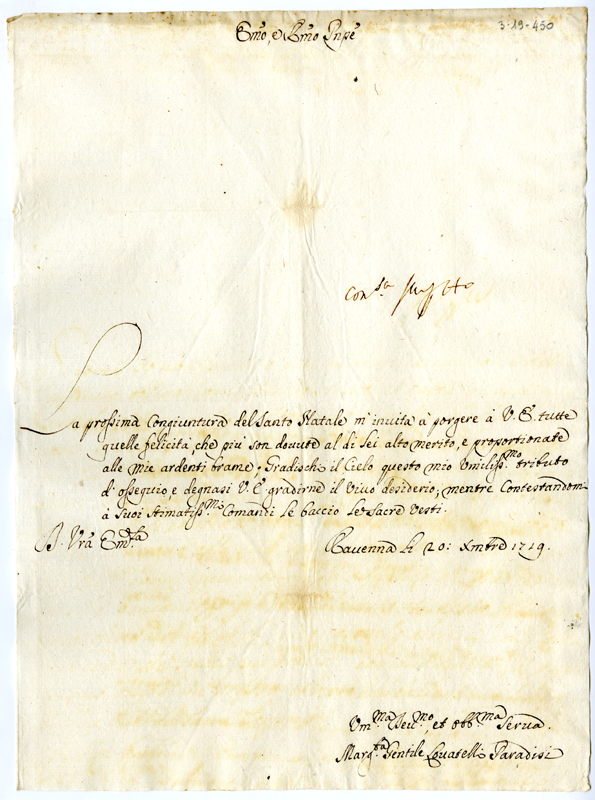 3-19-450
Emo, e Rmo Pnpe
Con.sa
La prossima Congiuntura del Santo Natale m'invita à porgere à V. E. tutte
quelle felicità, che più son dovute al di Lei alto merito, e proportionate
alle mie ardenti brame. Gradischi il Cielo questo mio Umiliss.mo tributo
d'ossequio, e degnasi V. E. gradirne il vivo desiderio; mentre Contestandomi
à Suoi stimatiss.mi Comandi le baccio le Sacre Vesti.
Di Vra Em.za
Ravenna li 20: Xmbre 1719.
Um.ma Dev.mo, et obb.ma Serva.
March.sa Gentile Lovatelli Paradisi